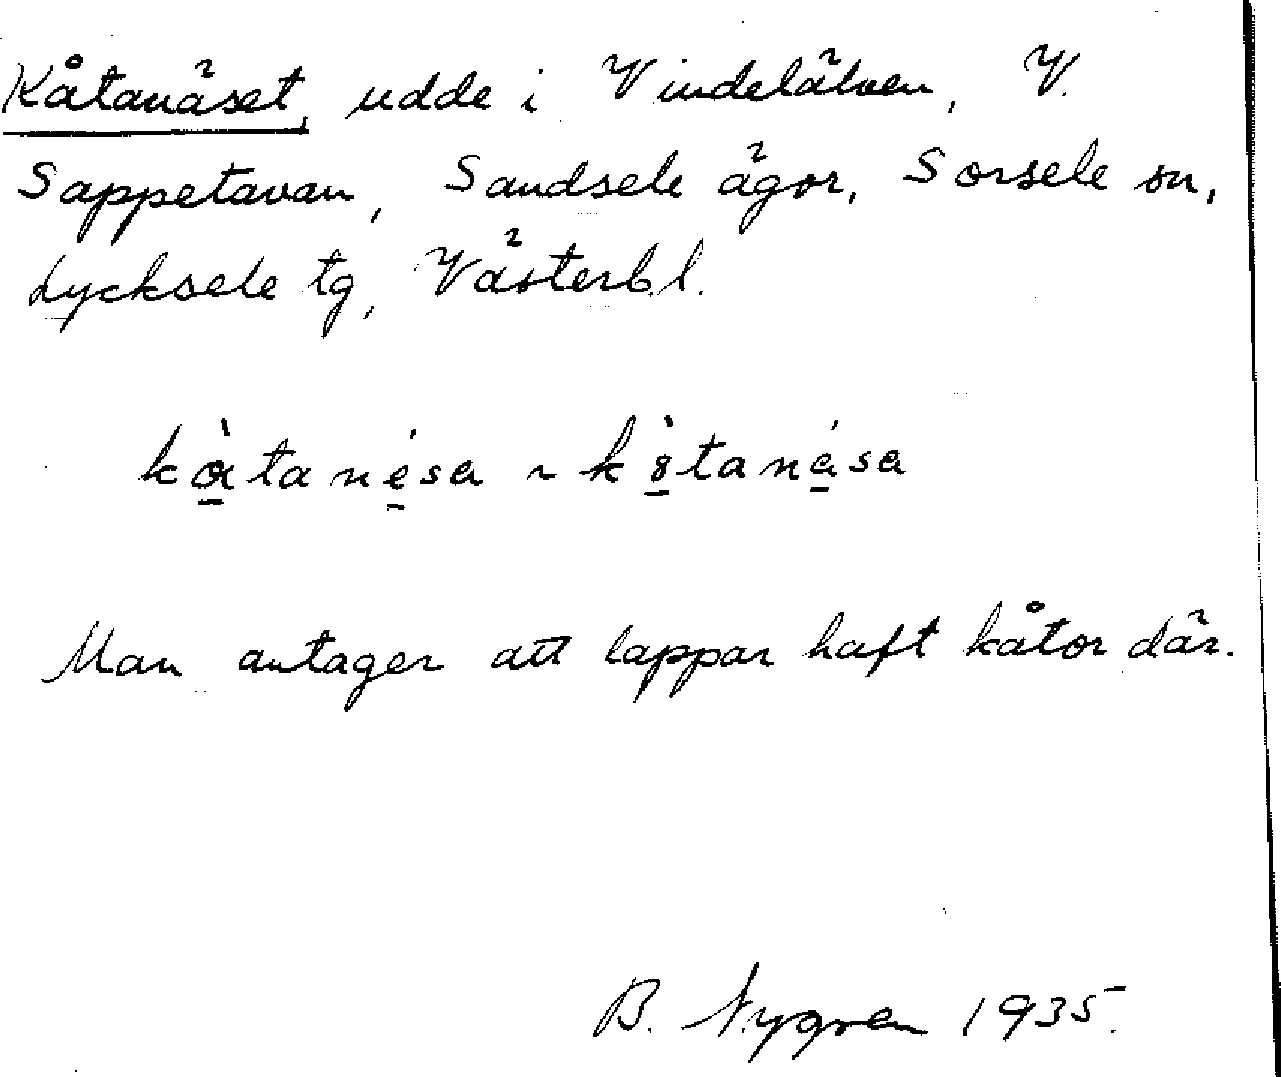 Kåtanäset, udde i Vindelälven, V.
Sappetavan, Sandsele ägor, Sorsele sn,
Lycksele tg, Västerb.l.
kåtanesa ~ kåtanäsa
Man antager att lappar haft kåtor där.
B. Nygren 1935.